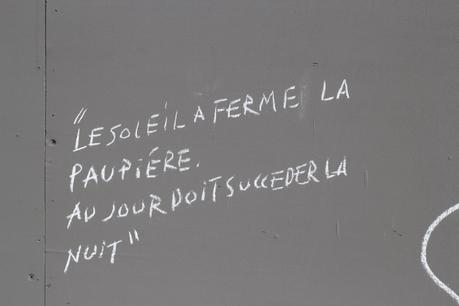 "LE SOLEIL A FERME LA
PAUPIÉRE.
AU JOUR DOIT SUCCEDER LA
NUIT"